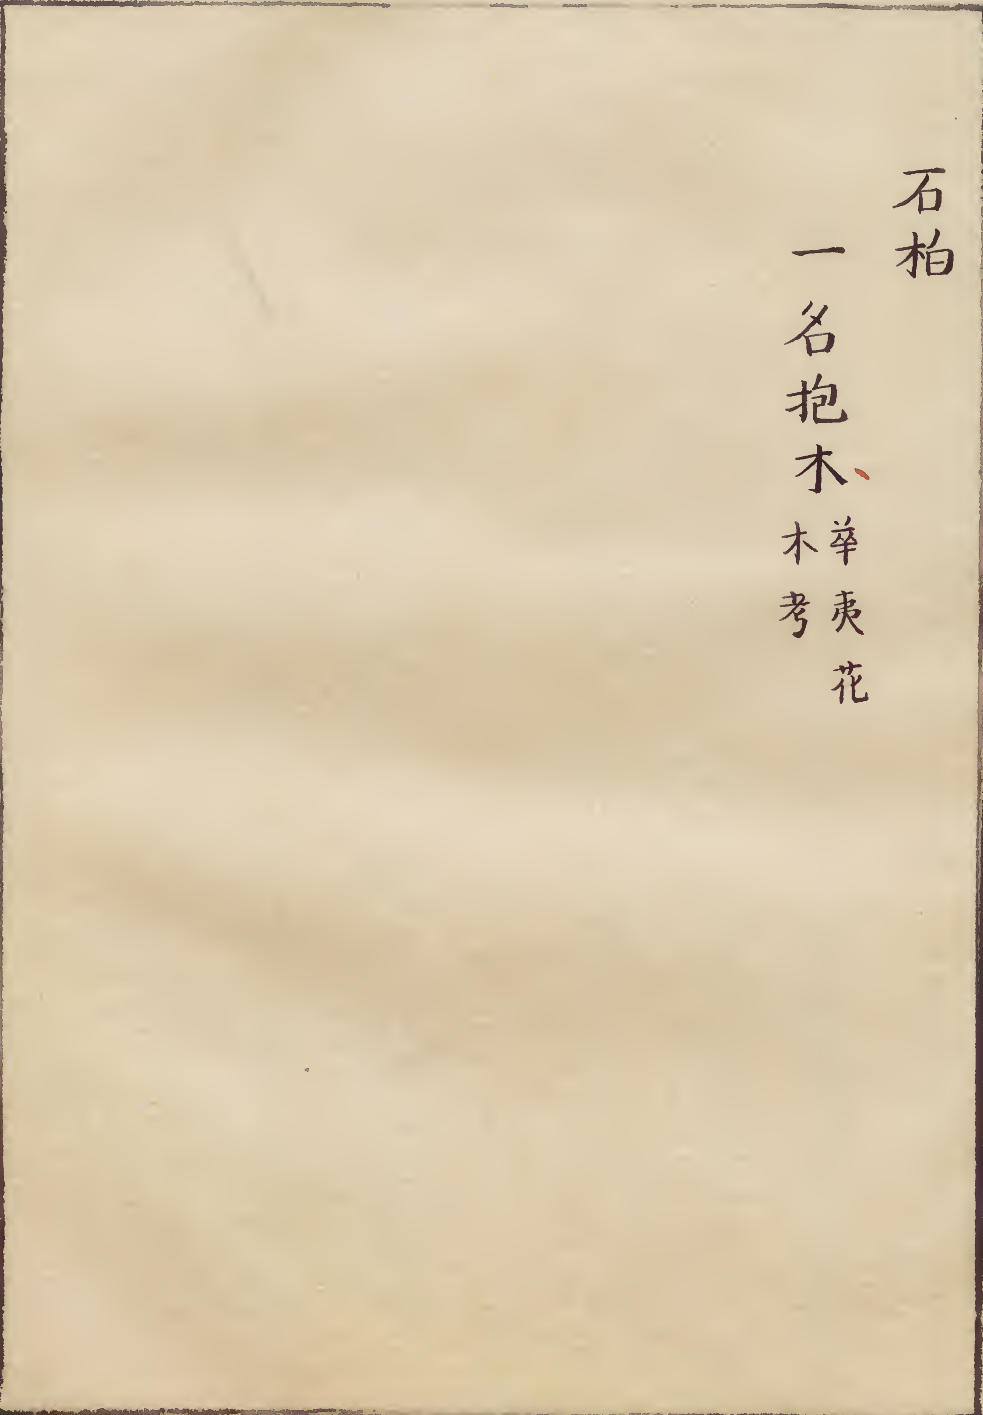 石柏
一名抱木
華夷花
木考